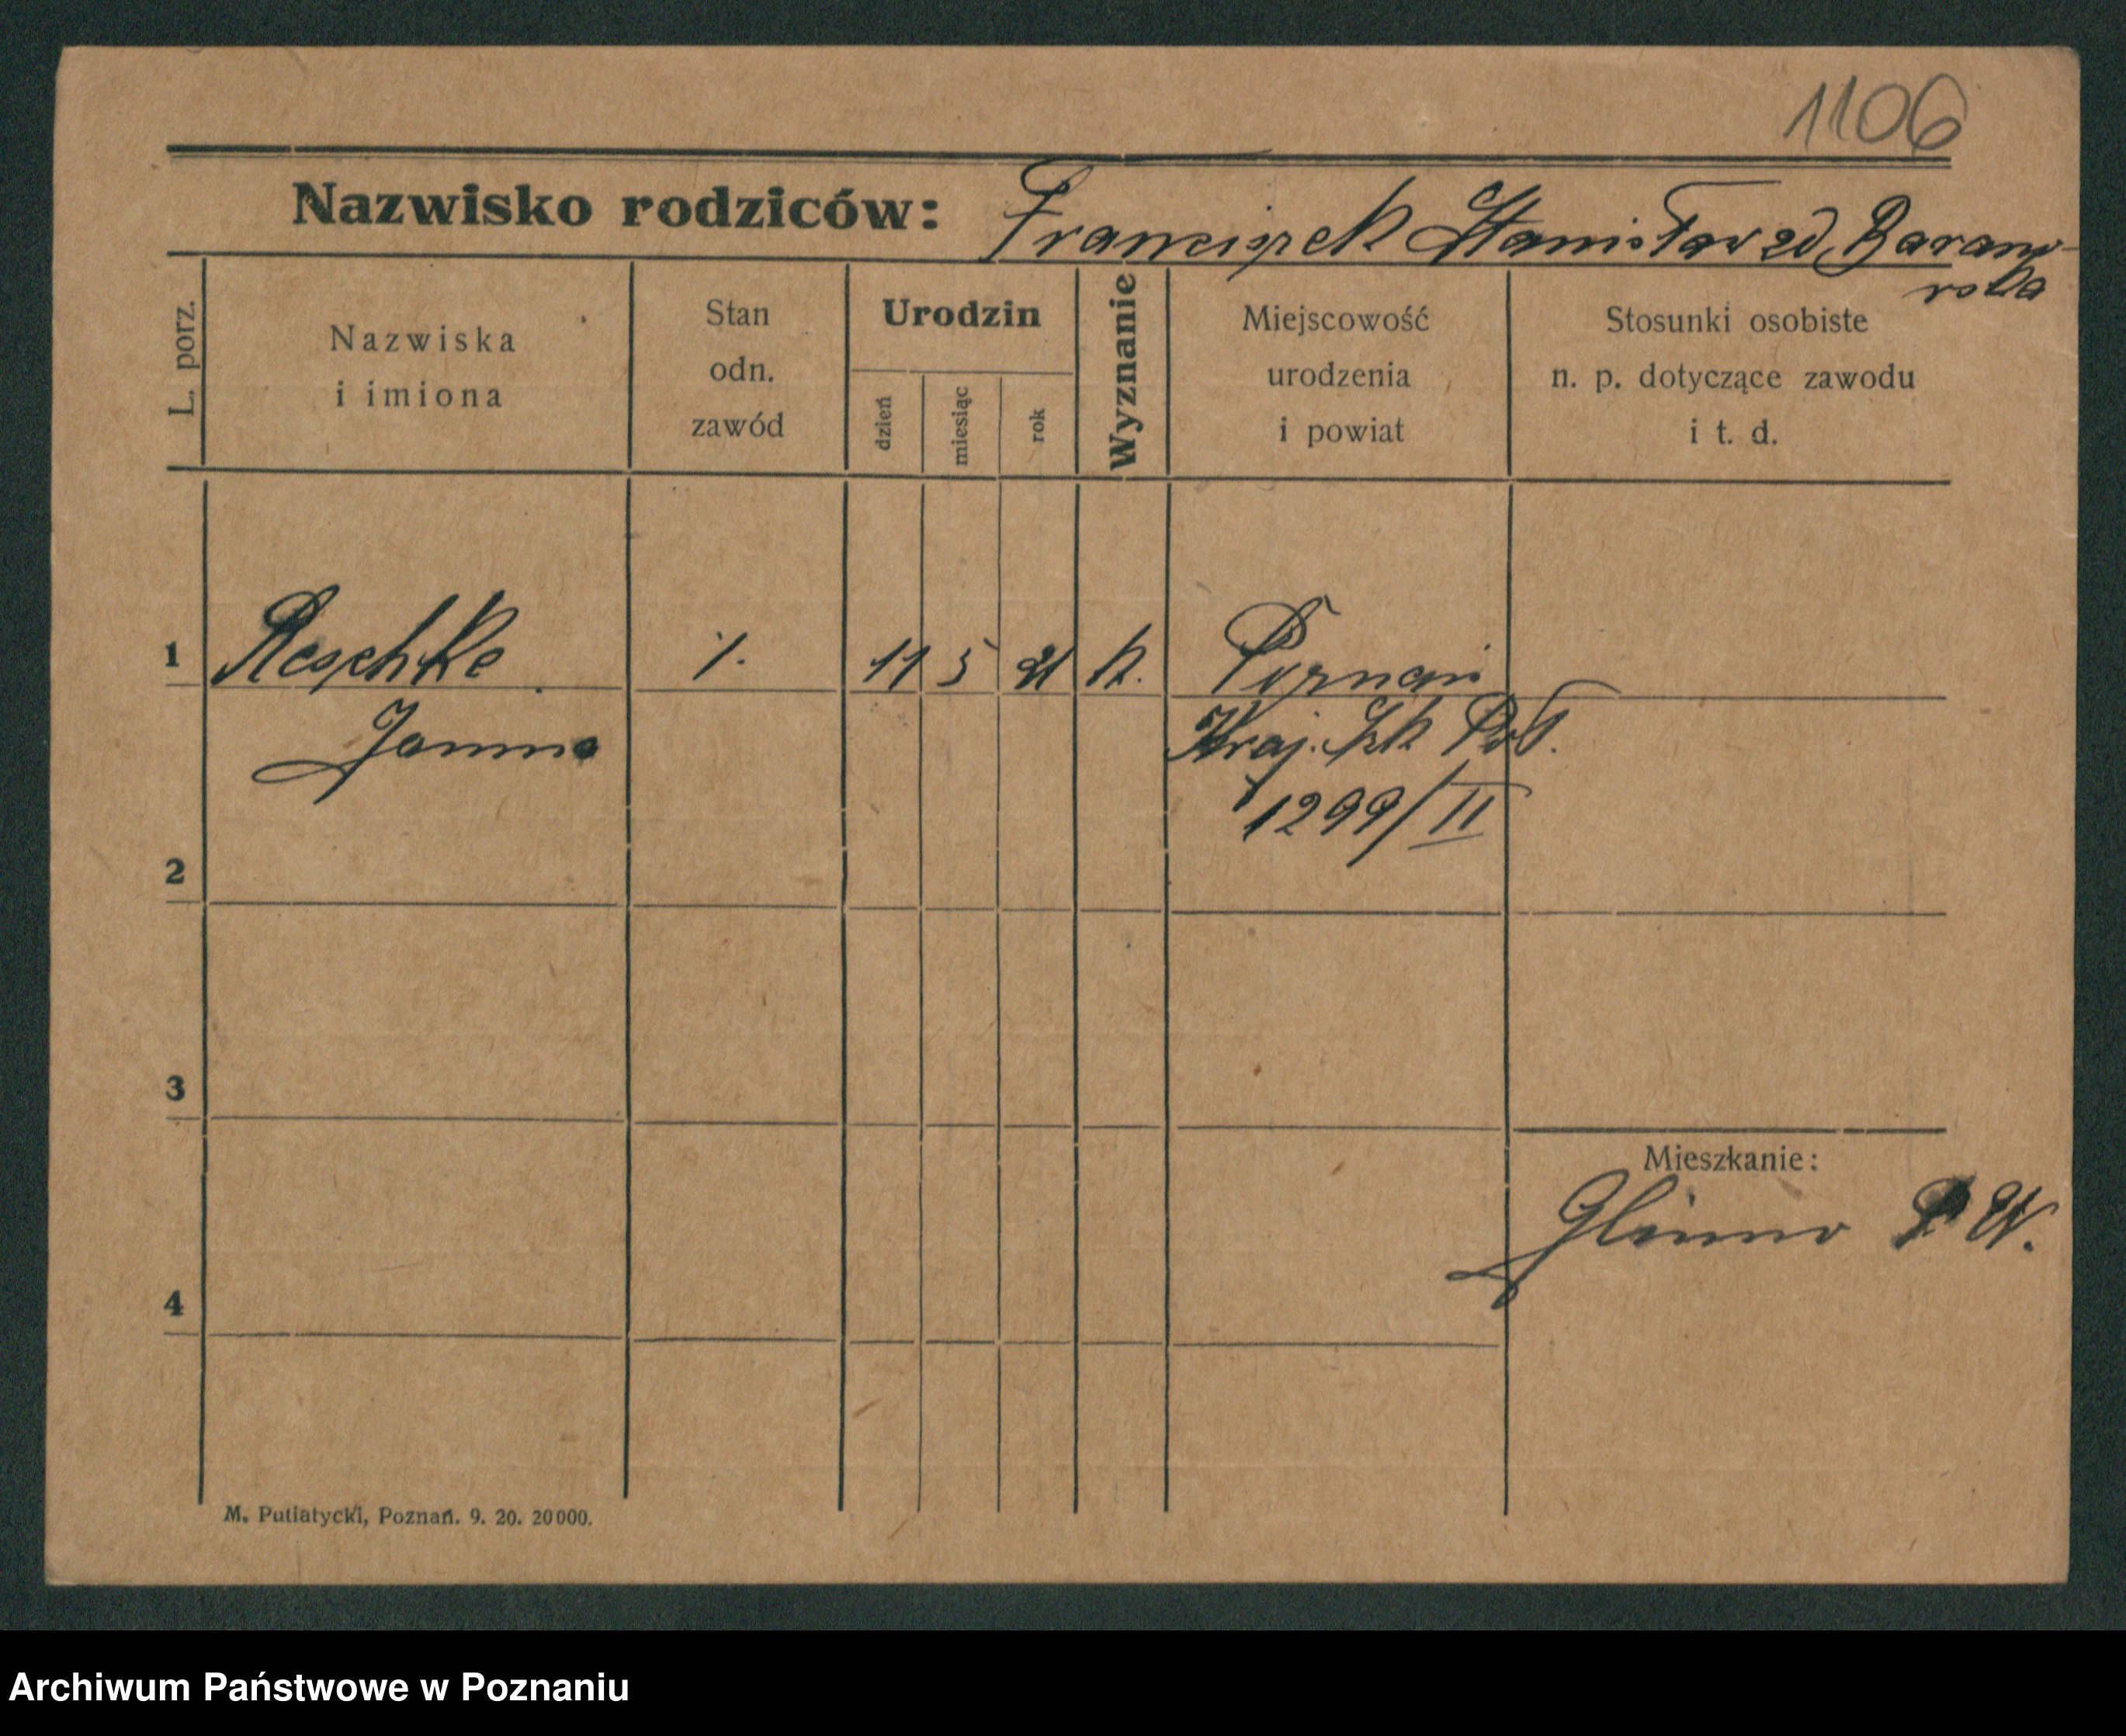 1106
Nazwisko rodziców: Franciszek Stanisława zd. Baranow-
ska
L. porz.
Nazwiska
i imiona
Stan
odn.
zawód
Urodzin
dzień
miesiąc
rok
Wyznanie
Miejscowość
urodzenia
i powiat
Stosunki osobiste
n. p. dotyczące zawodu
i t. d.
1 Reschke ./. 11 5 21 k. Poznań
Janina Kraj. Szk Poł.
1299/II
2
3
Mieszkanie:
Glinno P. W.
4
M. Putiatycki, Poznań. 9. 20. 20000.
Archiwum Państwowe w Poznaniu